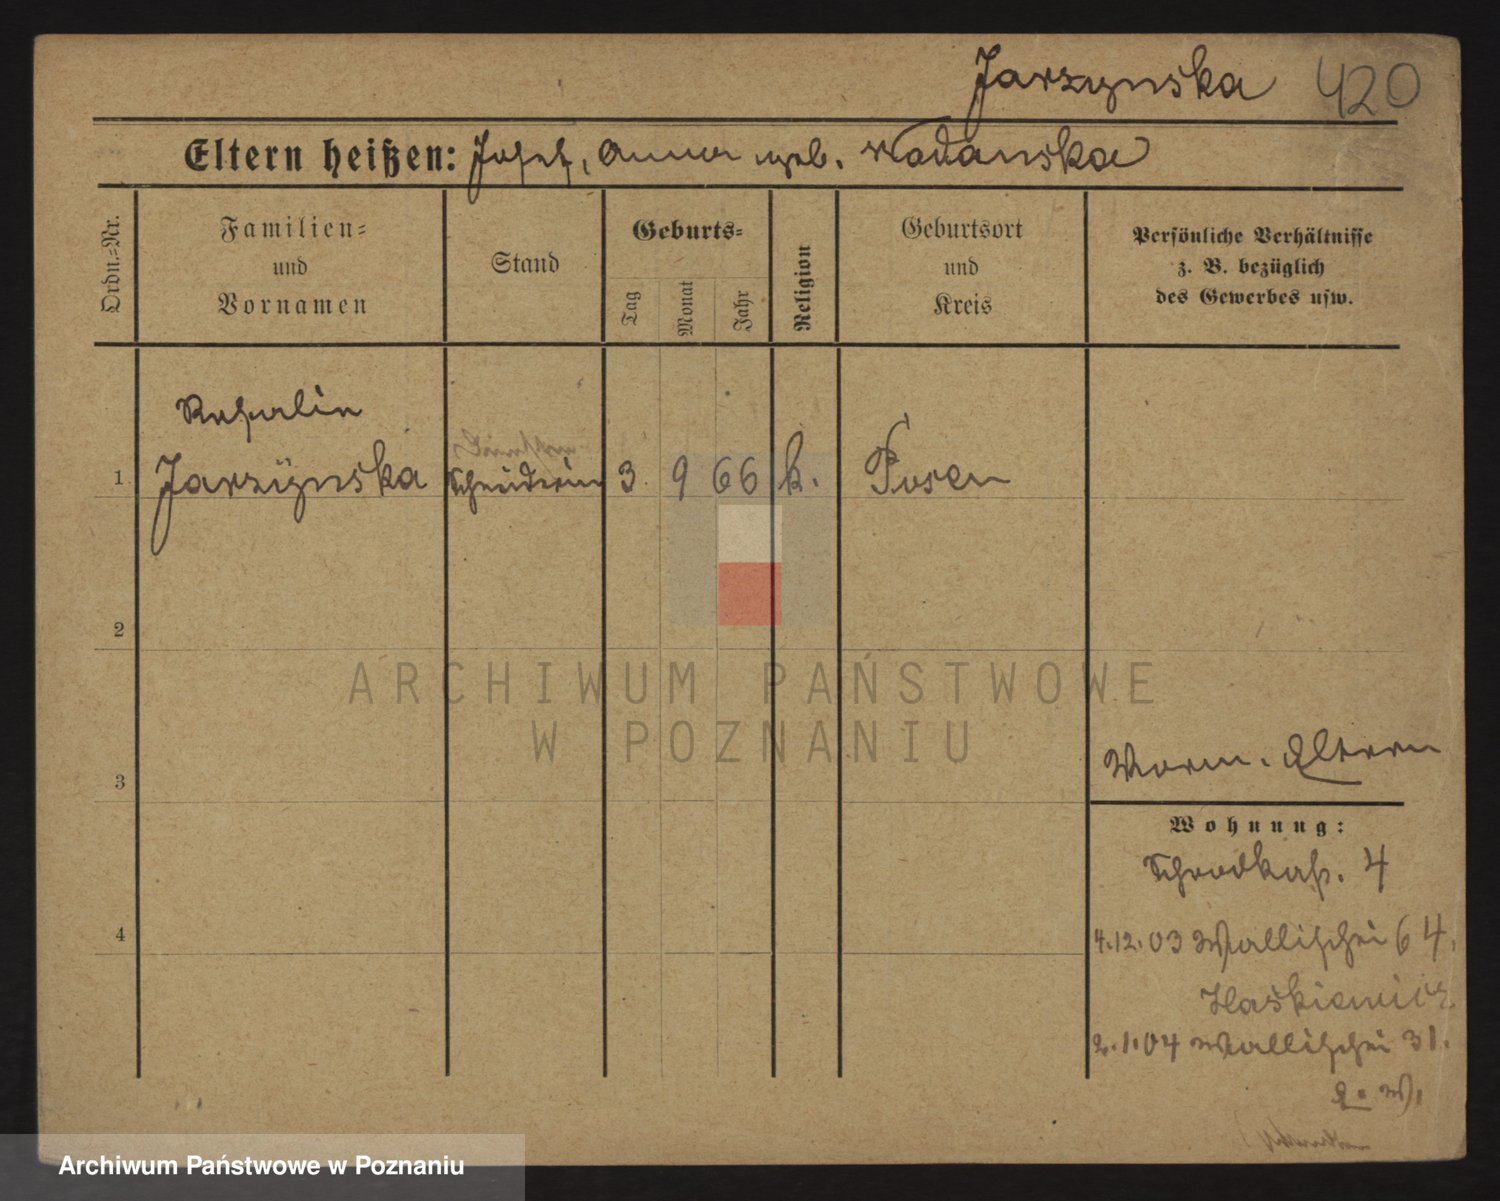 Jarzynska 420
Eltern heißen: Josef, Anna geb. Wodanska
Ordn.-Nr.
Familien-
und
Vornamen
Stand
Geburts-
Tag
Monat
Jahr
Religion
Geburtsort
und
Kreis
Persönliche Verhältnisse
z. B. bezüglich
des Gewerbes usw.
Rosalie
1 Jarzÿnska Schneiderin 3. 9 66 k. Posen
2
ARCHIWUM PAŃSTWOWE
W POZNANIU
3
Worm. Eltern
Wohnung:
Schrodkaß. 4
4
4.12.03 Wallischei 64.
Haskiewicz
2.1.04 Wallischei 31.
E. W.
Archiwum Państwowe w Poznaniu